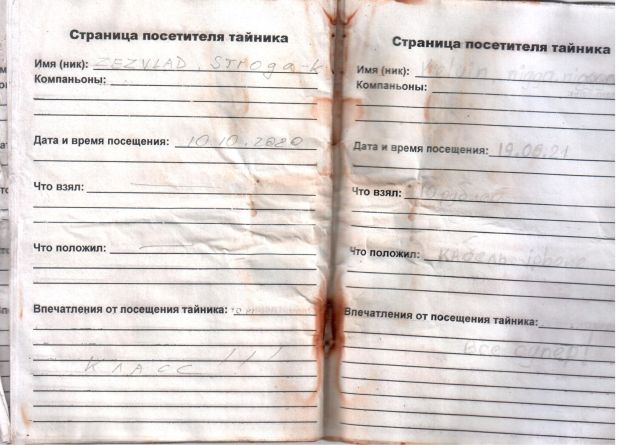 Страница посетителя тайника
Имя (ник): ZEZVLAD, Stroga-k
Компаньоны:
Дата и время посещения: 10.10.2020
Что взял:
Что положил:
Впечатления от посещения тайника:
КЛАСС!!!
Страница посетителя тайника
Имя (ник):
Компаньоны:
Дата и время посещения: 19.06.21
Что взял:
Что положил:
Впечатления от посещения тайника:
Все супер!